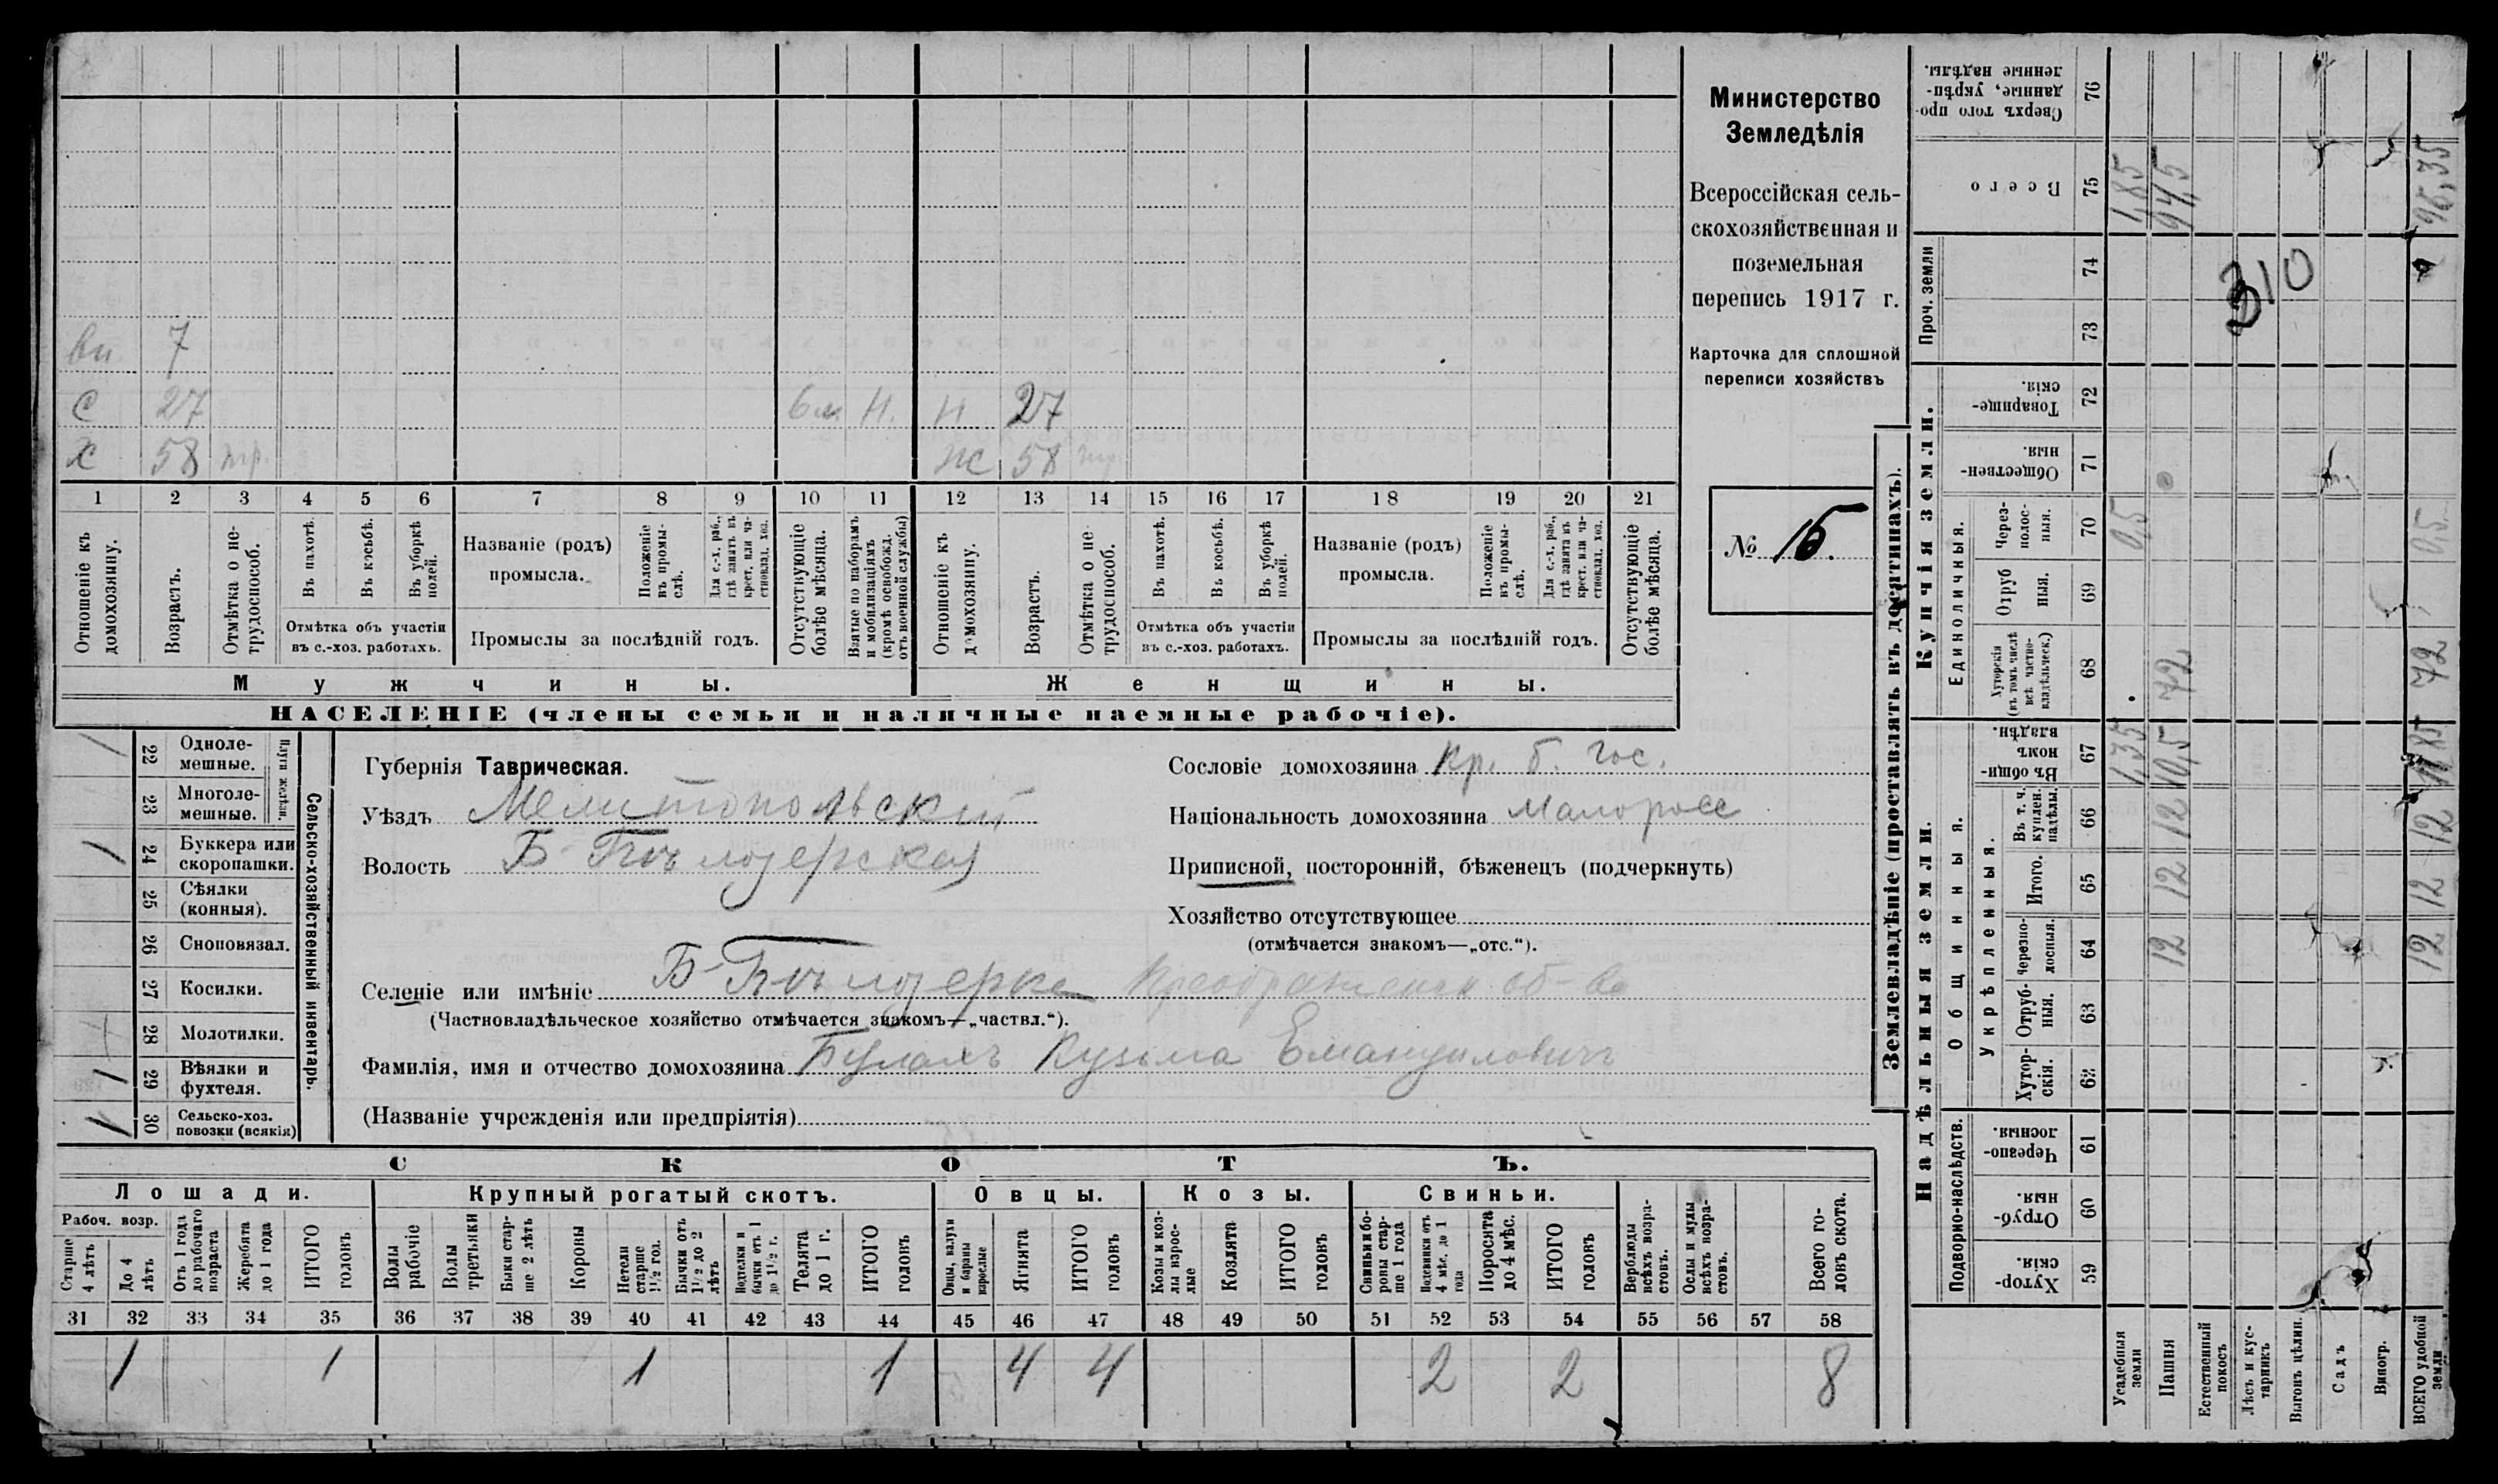 вн. 7
С 27 6 м Н. Н 27
Х 58 нтр. Ж 58 нтр.
1 2 3 4 5 6 7 8 9 10 11 12 13 14 15 16 17 18 19 20 21
Отношеніе къ домохозяину.
Возрастъ.
Отмѣтка о нетрудоспособ.
Въ пахотѣ.
Въ косьбѣ.
Въ уборкѣ полей.
Отмѣтка объ участіи
въ с.-хоз. работахъ.
Названіе (родъ)
промысла.
Положеніе въ промыслѣ.
Для с.-х. раб., гдѣ занятъ въ крест. или частновлад. хоз.
Промыслы за послѣдній годъ.
Отсутствующіе болѣе мѣсяца.
Взятые по наборамъ и мобилизаціямъ (кромѣ освобожд. отъ военной службы)
Отношеніе къ домохозяину.
Возрастъ.
Отмѣтка о нетрудоспособ.
Въ пахотѣ.
Въ косьбѣ.
Въ уборкѣ полей.
Отмѣтка объ участіи
въ с.-хоз. работахъ.
Названіе (родъ)
промысла.
Положеніе въ промыслѣ.
Для с.-х. раб., гдѣ занята въ крест. или частновлад. хоз.
Промыслы за послѣдній годъ.
Отсутствующіе болѣе мѣсяца.
Мужчины.
Женщины.
НАСЕЛЕНІЕ (члены семьи и наличные наемные рабочіе).
Министерство
Земледѣлія
Всероссійская сель-
скохозяйственная и
поземельная
перепись 1917 г.
Карточка для сплошной
переписи хозяйствъ
№ 16.
Сельско-хозяйственный инвентарь.
Плуги желѣзн.
/ 22 Одноле-
мешные.
23 Многоле-
мешные.
1 24 Буккера или
скоропашки.
25 Сѣялки
(конныя).
26 Сноповязал.
27 Косилки.
28 Молотилки.
1 29 Вѣялки и
фухтеля.
1 30 Сельско-хоз.
повозки (всякія)
Губернія Таврическая.
Уѣздъ Мелитопольскій
Волость Б-Бѣлозерская
Сословіе домохозяина кр. б. гос.
Національность домохозяина малоросс
Приписной, посторонній, бѣженецъ (подчеркнуть)
Хозяйство отсутствующее
(отмѣчается знакомъ—„отс.“).
Селеніе или имѣніе Б-Бѣлозерка Преображенск об-во
(Частновладѣльческое хозяйство отмѣчается знакомъ—„частвл.“).
Фамилія, имя и отчество домохозяина Булахъ Кузьма Емануиловичъ
(Названіе учрежденія или предпріятія)
СКОТЪ.
Лошади. Крупный рогатый скотъ. Овцы. Козы. Свиньи.
Рабоч. возр.
Старше 4 лѣтъ
До 4 лѣтъ
Отъ 1 года до рабочаго возраста
Жеребята до 1 года
ИТОГО головъ
Волы рабочіе
Волы третьяки
Быки старше 2 лѣтъ
Коровы
Нетели старше 1½ год.
Бычки отъ 1½ до 2 лѣтъ
Подтелки и бычки отъ 1 до 1½ г.
Телята до 1 г.
ИТОГО головъ
Овцы, валухи и бараны взрослые
Ягнята
ИТОГО головъ
Козы и козлы взрослые
Козлята
ИТОГО головъ
Свиньи и бороны старше 1 года
Подсвинки отъ 4 мѣс. до 1 года
Поросята до 4 мѣс.
ИТОГО головъ
Верблюды всѣхъ возрастовъ.
Ослы и мулы всѣхъ возрастовъ.
Всего головъ скота.
31 32 33 34 35 36 37 38 39 40 41 42 43 44 45 46 47 48 49 50 51 52 53 54 55 56 57 58
1 1 1 1 4 4 2 2 8
Землевладѣніе (проставлять въ десятинахъ).
Надѣльныя земли.
Купчія земли.
Проч. земли
Подворно-наслѣдств.
Общинныя.
Укрѣпленныя.
Единоличныя.
Хуторскія 59
Отрубныя. 60
Черезполосныя. 61
Хуторскія. 62
Отрубныя. 63
Черезполосныя. 64 12 12
Итого. 65 12 12
Въ т. ч. куплен. надѣлы. 66 12 12
Въ общинномъ владѣн. 67 1,35 10,5
Хуторскія (въ томъ числѣ всѣ частновладѣльческ.) 68 72 72
Отрубныя. 69
Черезполосныя. 70 0,5 0,5
Общественныя. 71
Товарищескія. 72
73
74
Всего 75 1,85 94,5 96,35
Сверхъ того проданные, укрѣпленные надѣлы. 76
310
Усадебныя земли
Пашня
Естественный покосъ
Лѣсъ и кустарникъ
Выгонъ цѣлин.
Садъ
Виногр.
ВСЕГО удобной земли